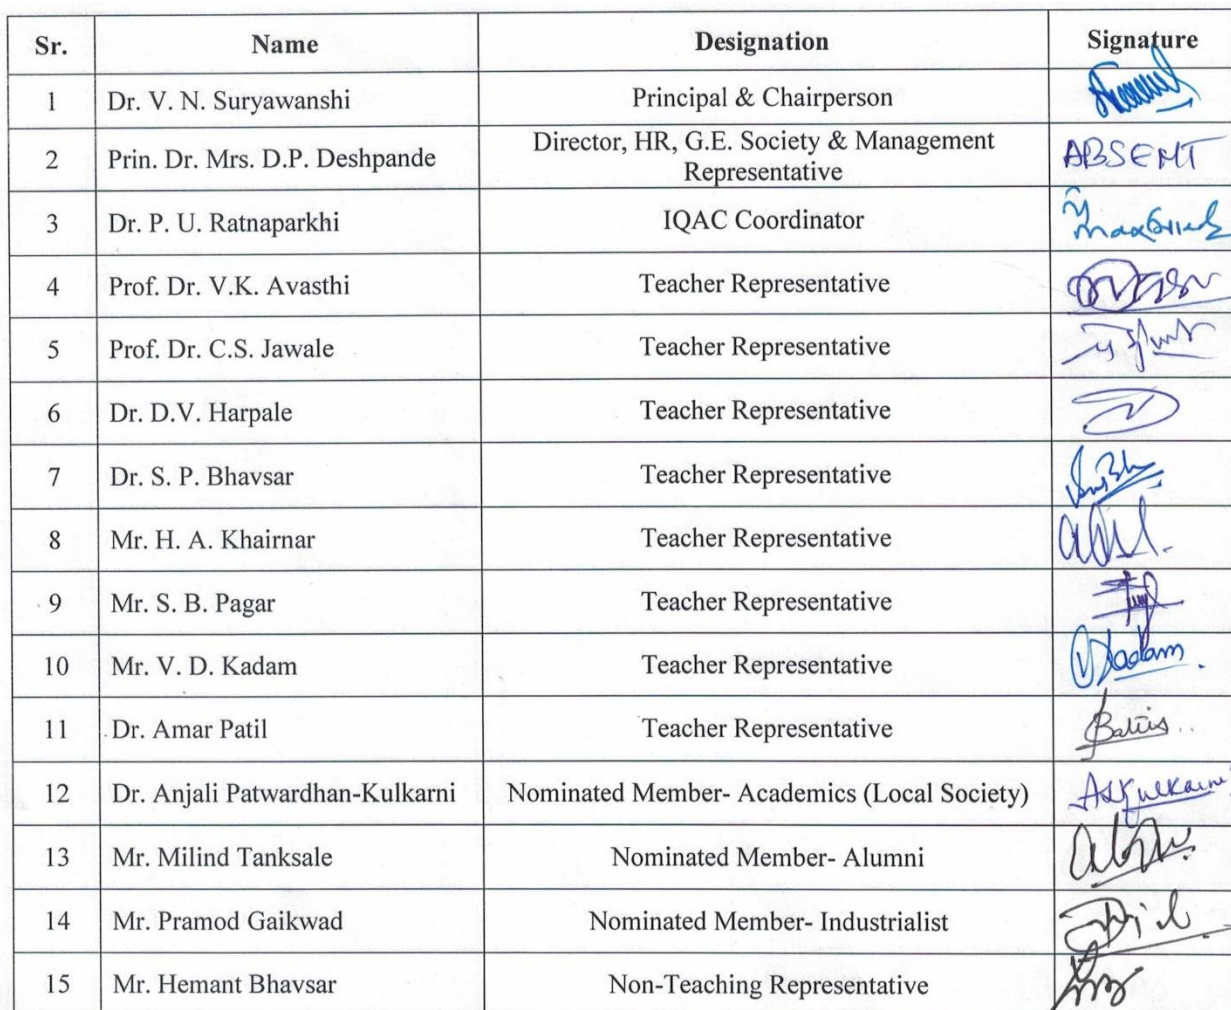 Sr. Name Designation Signature
1 Dr. V. N. Suryawanshi Principal & Chairperson
2 Prin. Dr. Mrs. D.P. Deshpande Director, HR, G.E. Society & Management Representative ABSENT
3 Dr. P. U. Ratnaparkhi IQAC Coordinator
4 Prof. Dr. V.K. Avasthi Teacher Representative
5 Prof. Dr. C.S. Jawale Teacher Representative
6 Dr. D.V. Harpale Teacher Representative
7 Dr. S. P. Bhavsar Teacher Representative
8 Mr. H. A. Khairnar Teacher Representative
9 Mr. S. B. Pagar Teacher Representative
10 Mr. V. D. Kadam Teacher Representative Kadam
11 Dr. Amar Patil Teacher Representative
12 Dr. Anjali Patwardhan-Kulkarni Nominated Member- Academics (Local Society)
13 Mr. Milind Tanksale Nominated Member- Alumni
14 Mr. Pramod Gaikwad Nominated Member- Industrialist
15 Mr. Hemant Bhavsar Non-Teaching Representative